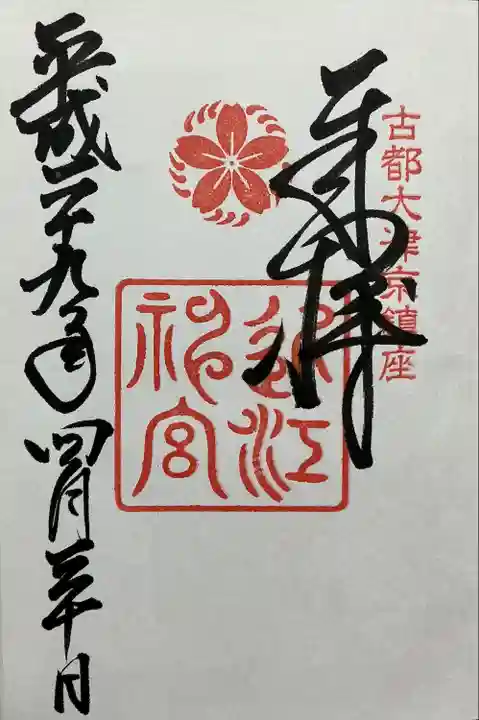 古都大津京鎮座
奉拝
近江
神宮
平成二十九年四月三十日